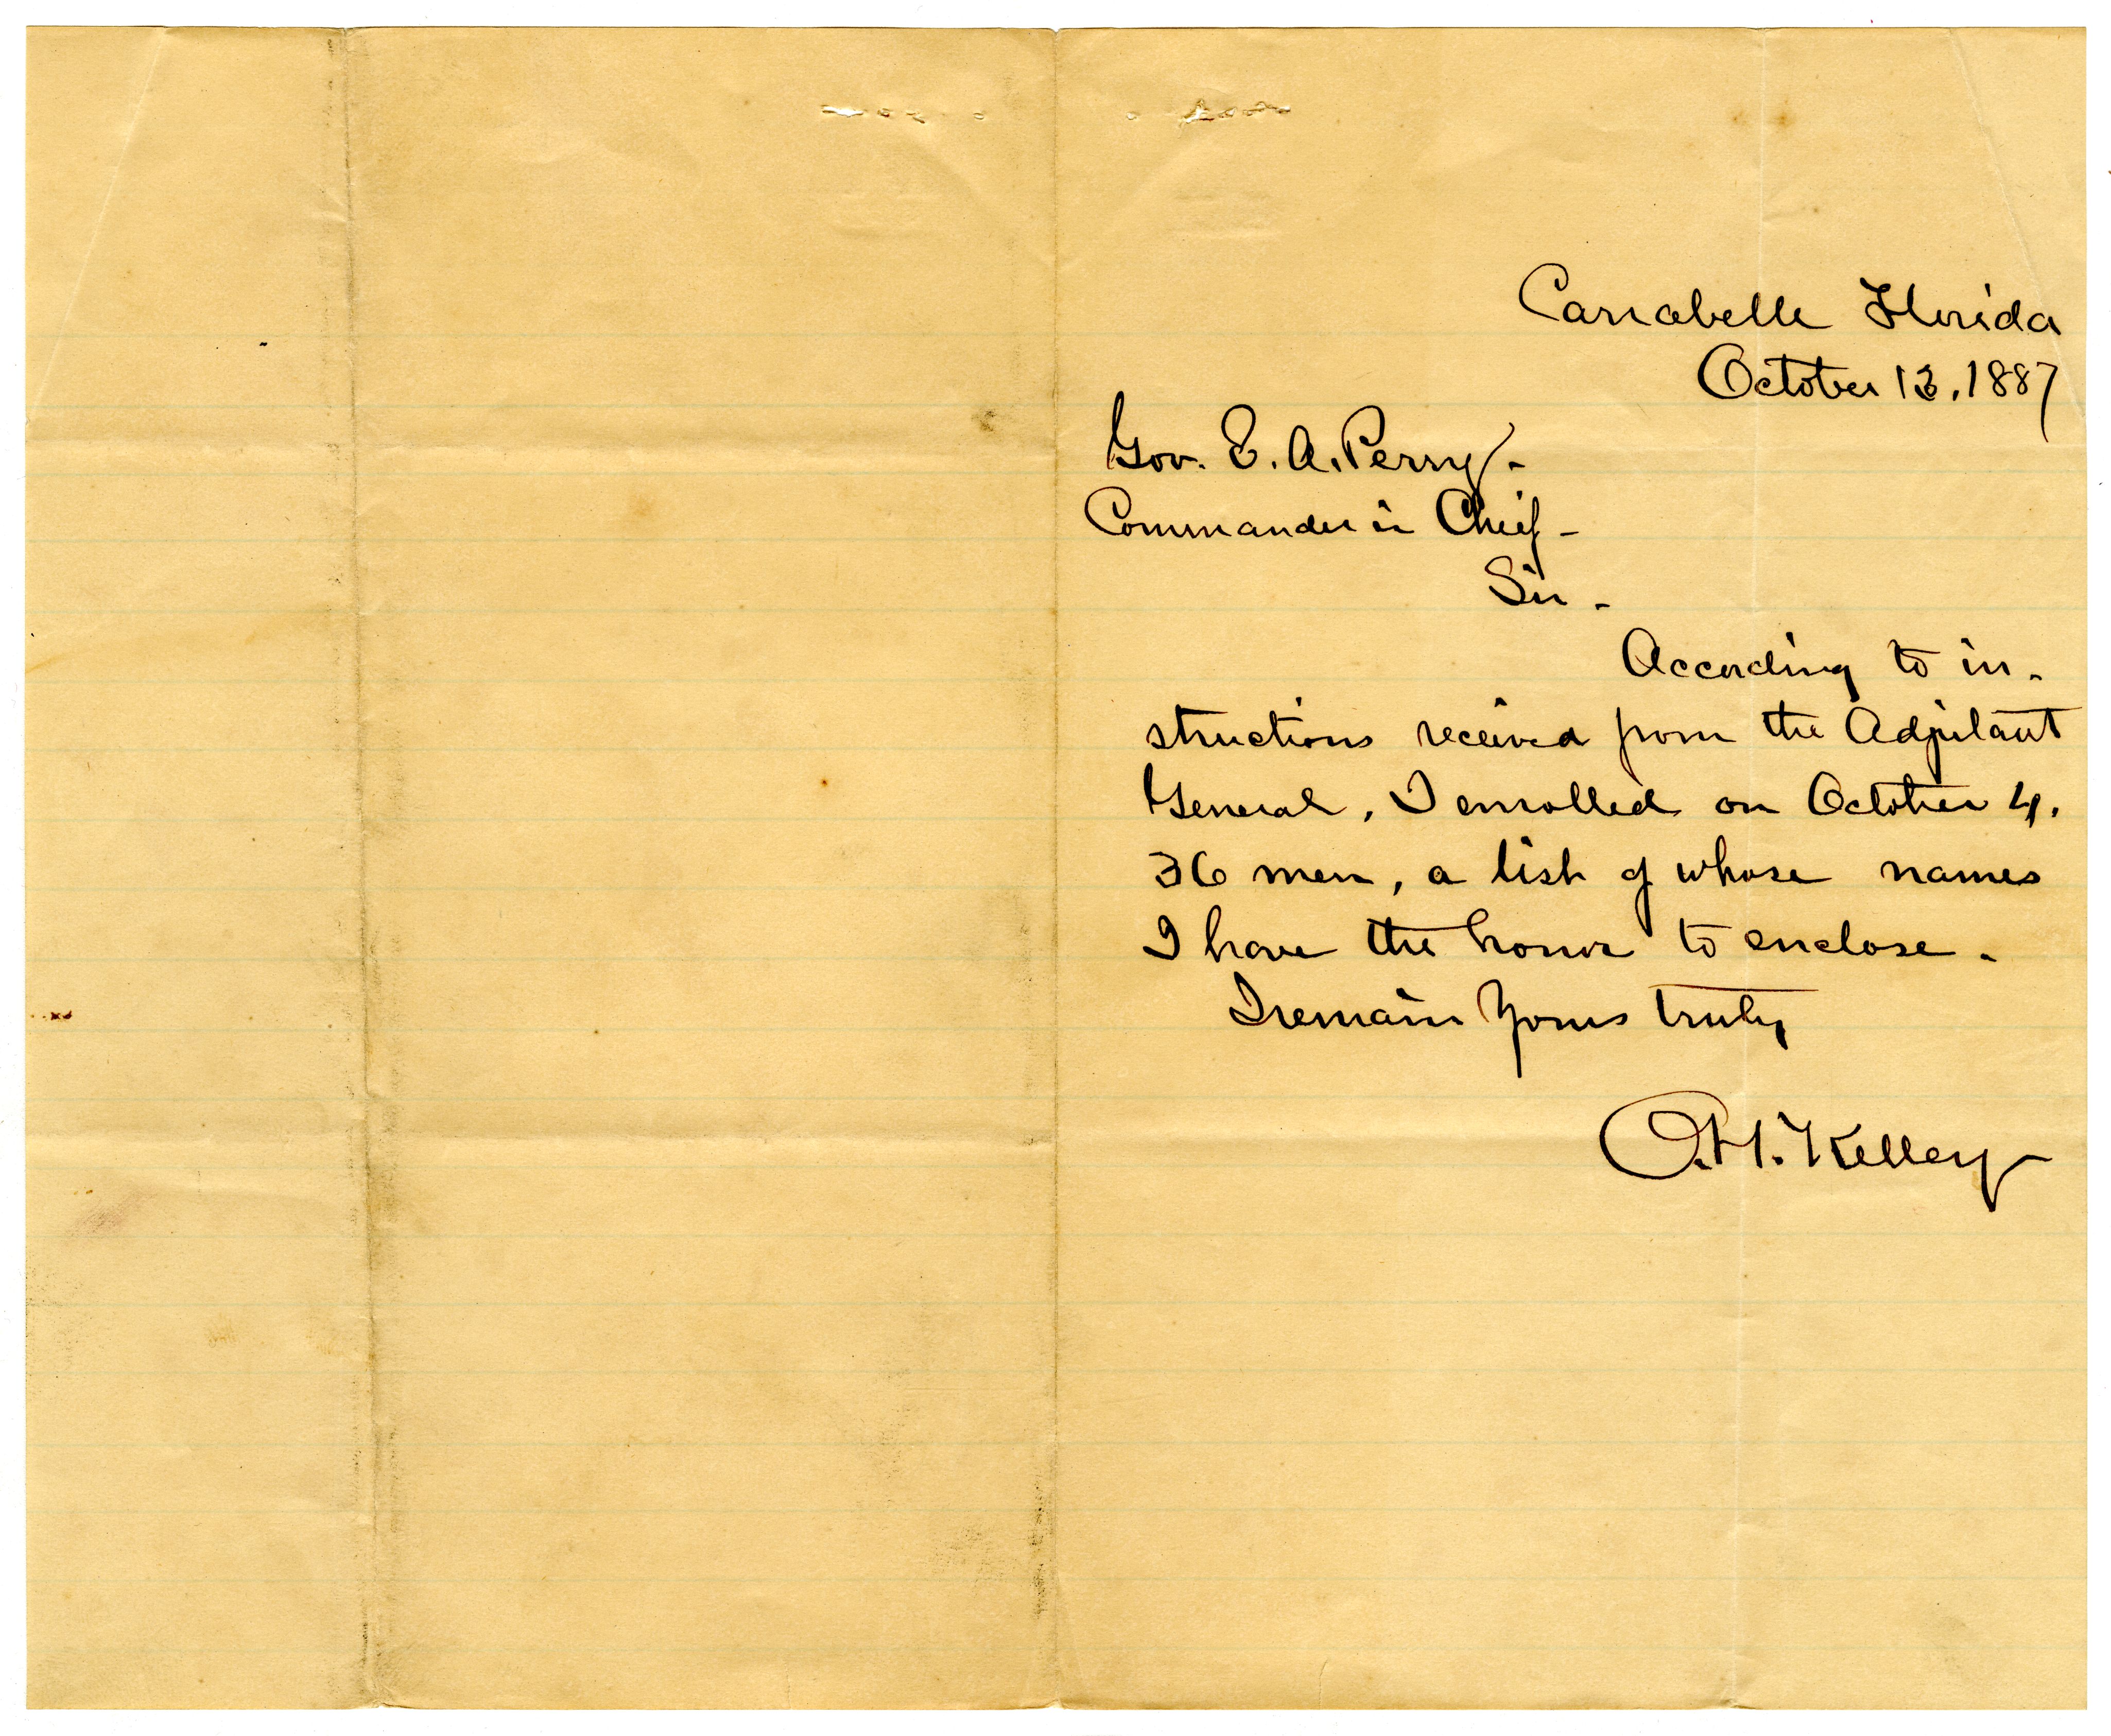 Carrabelle Florida
October 13, 1887
Gov. E. A. Perry -
Commander in Chief -
Sir -
According to in-
structions received from the Adjutant
General, I enrolled on October 4.
36 men, a list of whose names
I have the honor to enclose -
I remain Yours truly
O. H. Kelley